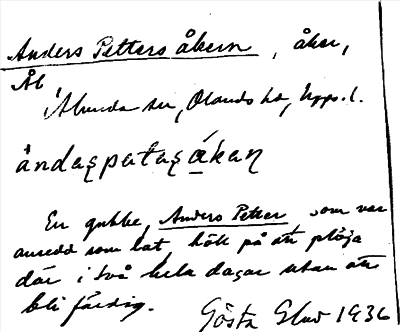 Anders Petters åkern, åker,
Åb
Almunda sn, Olands hd, Upps. l.
ándaʂpataʂákaɳ
En gubbe, Anders Petter som var
ansedd som lat, höll på att plöja
där i två hela dagar utan att
bli färdig.
Gösta 1936